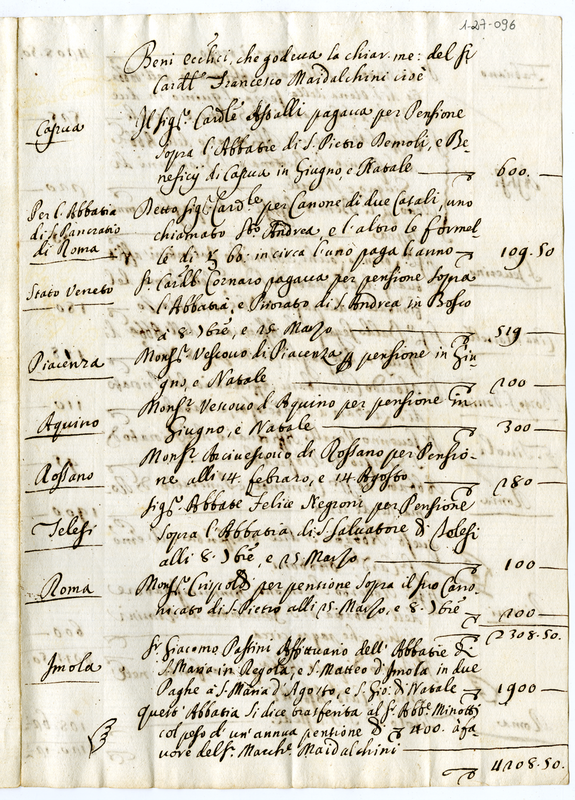 1-27-096
Beni eccl.ici, che godeva la chiar. me: del Sr
Card.le Francesco Maidalchini cioè
Capua
Il Sig.r Card.le Assalli pagava per Pensione
sopra l'Abbatie di S. Pietro Demoli, e Be-
neficij di Capua in Giugno, e Natale 600.
Per l'Abbatia
di S. Pancratio
di Roma
Detto Sig.r Card.le per Canone di due Casali, uno
chiamato Sto Andrea, e l'altro le formel
le di 66: in circa l'uno paga l'anno 109.50
Stato Veneto
Sr Card.le Cornaro pagava per pensione sopra
l'Abbatia, e Priorato di S. Andrea in Bosco
a 8 Xbre, e 25 Marzo 519
Piacenza
Mons.r Vescovo di Piacenza p pensione in Giu-
gno, e Natale 200
Aquino
Mons.r Vescovo d'Aquino per pensione in
Giugno, e Natale 300
Rossano
Mons.r Arcivescovo di Rossano per Pensio-
ne alli 14. febraro, e 14 Agosto 280
Telesi
Sig.r Abbate Felice Negroni per Pensione
sopra l'Abbatia di S. Salvatore di Telesi
alli 8. Xbre, e 25 Marzo 100
Roma
Mons.r Crispoldi per pensione sopra il suo Cano-
nicato di S. Pietro alli 25 Marzo, e 8 Xbre 200
2308.50.
Imola
Sr Giacomo Passini Affittuario dell'Abbatie di
S. Maria in Regola, e S. Matteo d'Imola in due
Paghe a S. Maria d'Agosto, e S. Gio: di Natale 1900
quest'Abbatia si dice trasferita al Sr Abb.e Minotti
col peso d'un'annua pensione di 400. à fa-
vore del Sr March.e Maidalchini
4208.50.